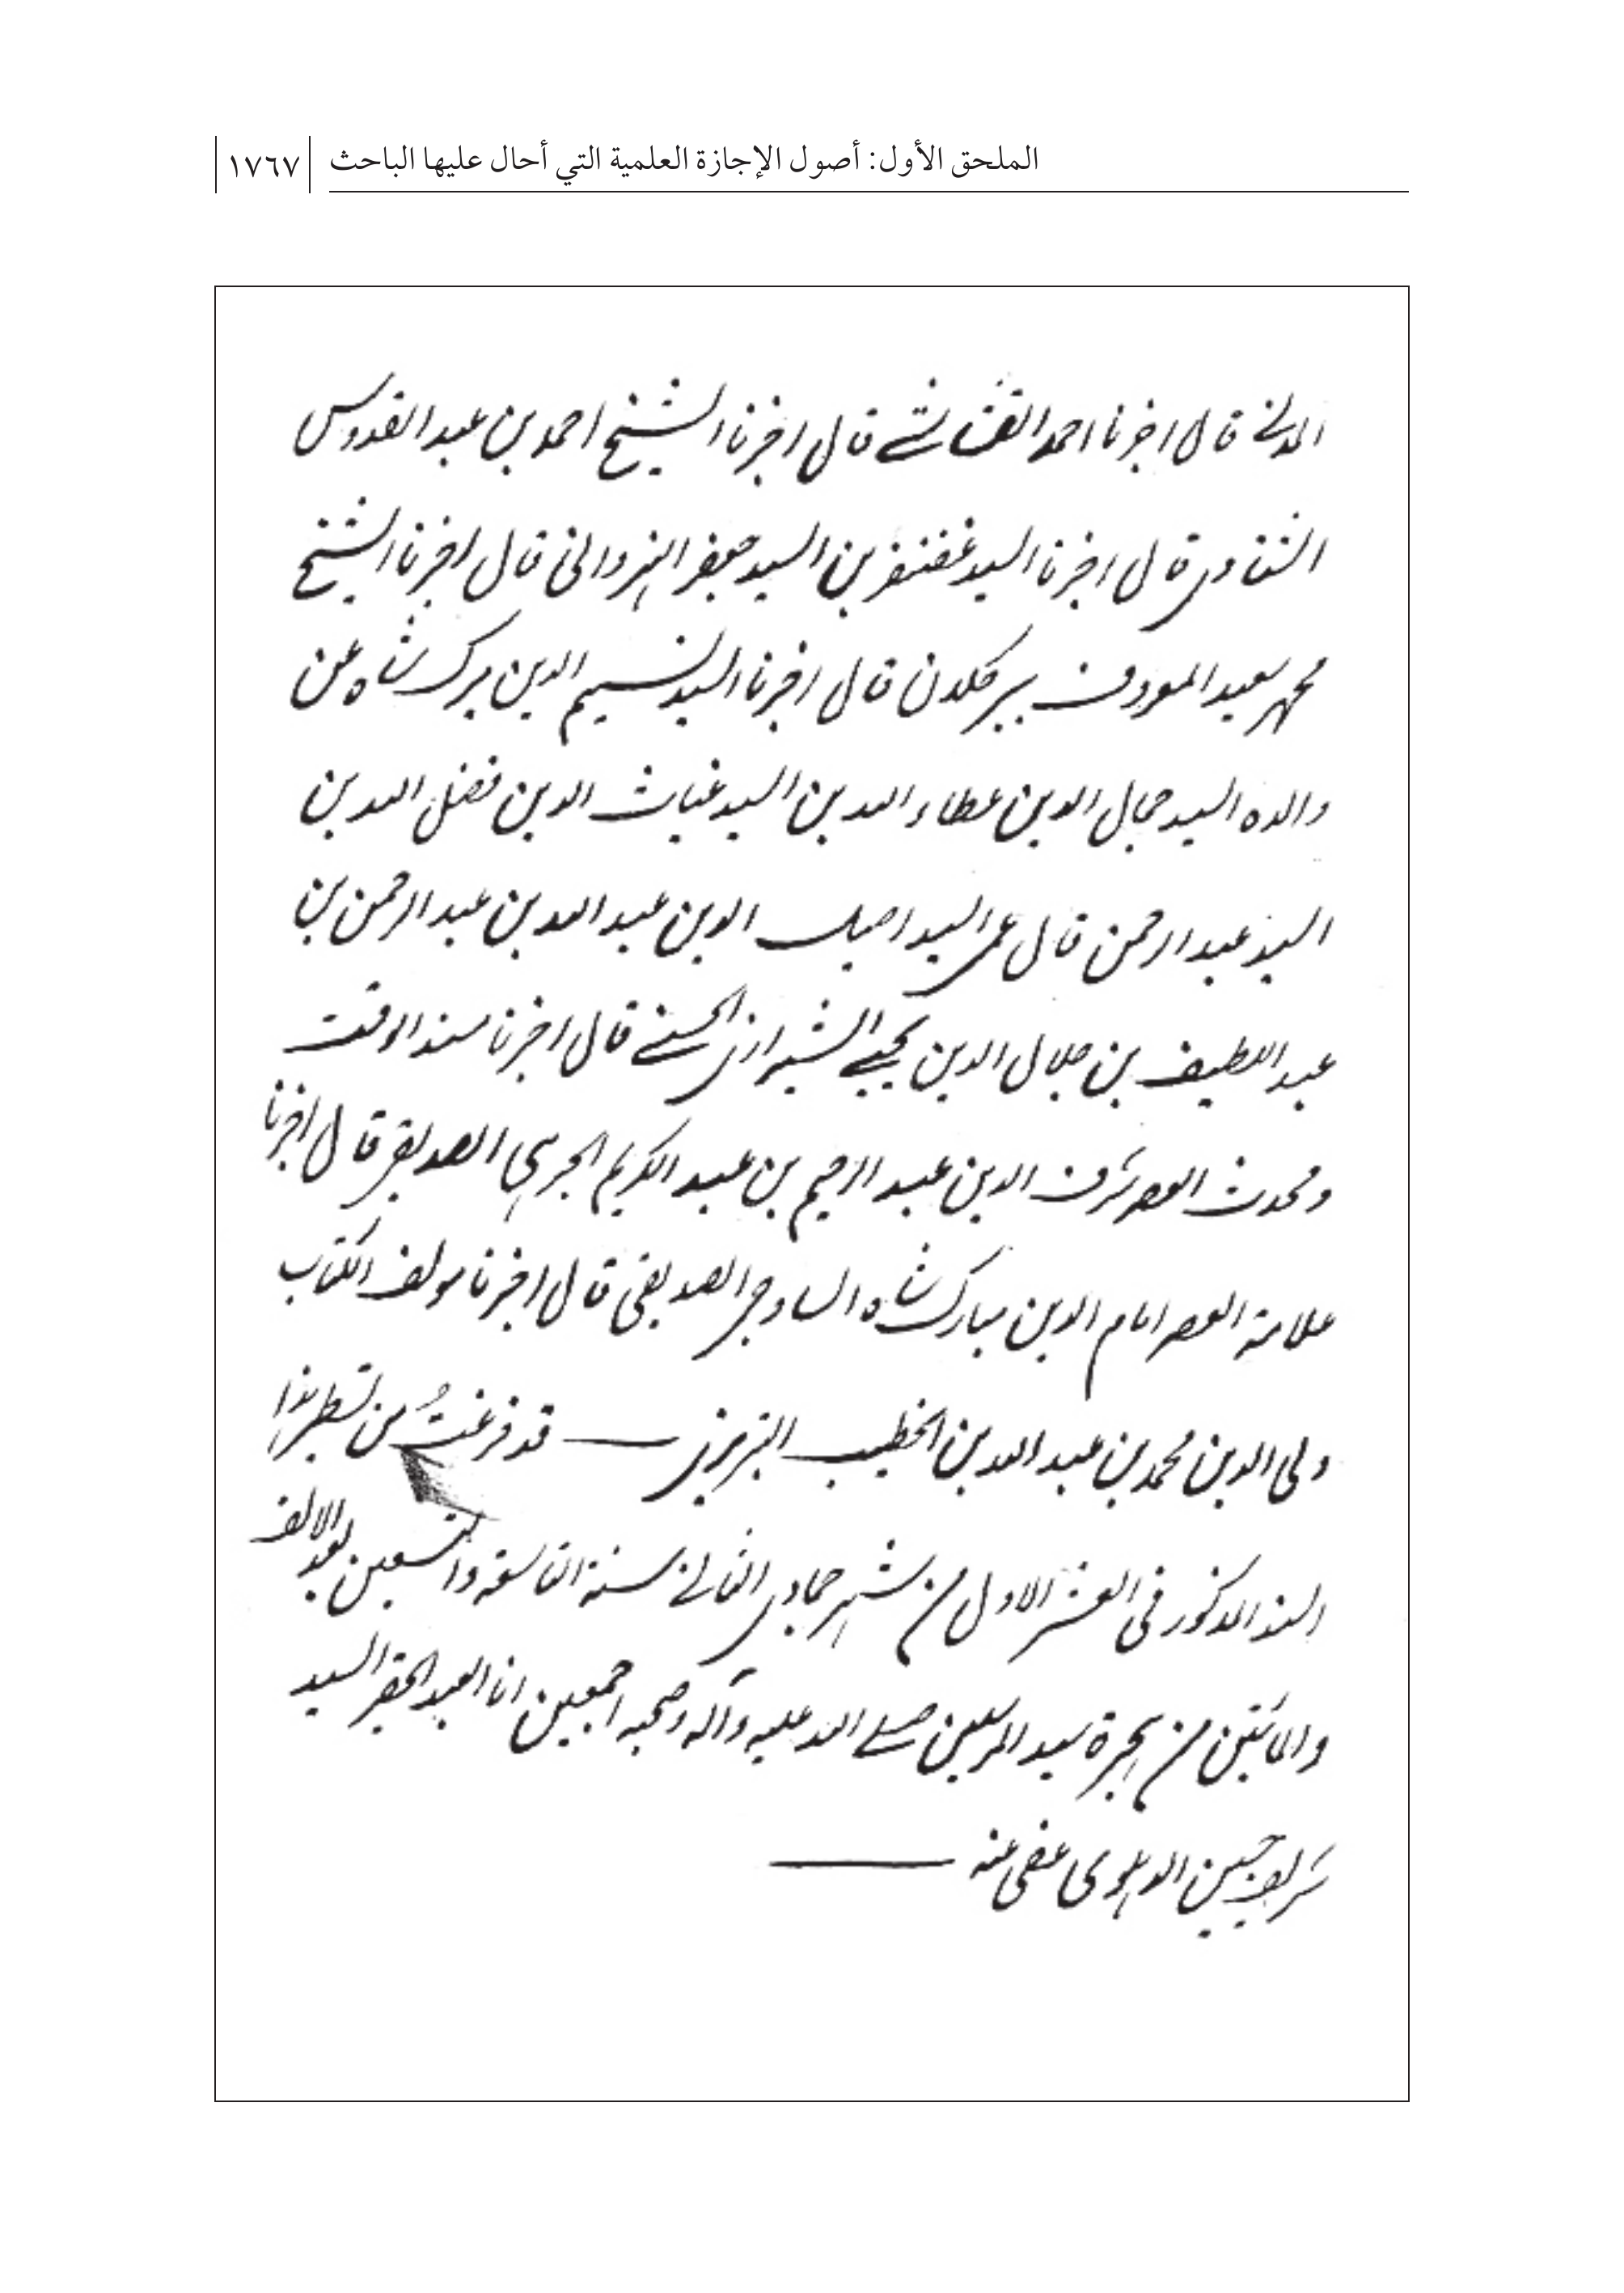 الملحق الأول: أصول الإجازة العلمية التي أحال عليها الباحث ١٧٦٧
المدني قال اخبرنا احمد القشاشي قال اخبرنا الشيخ احمد بن عبد القدوس
الشناوي قال اخبرنا السيد غضنفر بن السيد جعفر النهروالي قال اخبرنا الشيخ
محمد سعيد المعروف بمير كلان قال اخبرنا السيد نسيم الدين ميرك شاه عن
والده السيد جمال الدين عطاء الله بن السيد غياث الدين فضل الله بن
السيد عبد الرحمن قال عمي السيد اصيل الدين عبد الله بن عبد الرحمن بن
عبد اللطيف بن جلال الدين يحيى الشيرازي الحسني قال اخبرنا مسند الوقت
ومحدث العصر شرف الدين عبد الرحيم بن عبد الكريم الجرهي الصديقي قال اخبرنا
علامة العصر امام الدين مبارك شاه الساوجي الصديقي قال اخبرنا مولف الكتاب
ولي الدين محمد بن عبد الله بن الخطيب التبريزي قد فرغتُ من تسطير هذا
السند المذكور في العشر الاول من شهر جمادي الثاني سنة التاسعة والتسعين بعد الالف
والمائتين من هجرة سيد المرسلين صلى الله عليه وآله وصحبه اجمعين انا العبد الحقير السيد
شريف حسين الدهلوي عفي عنه